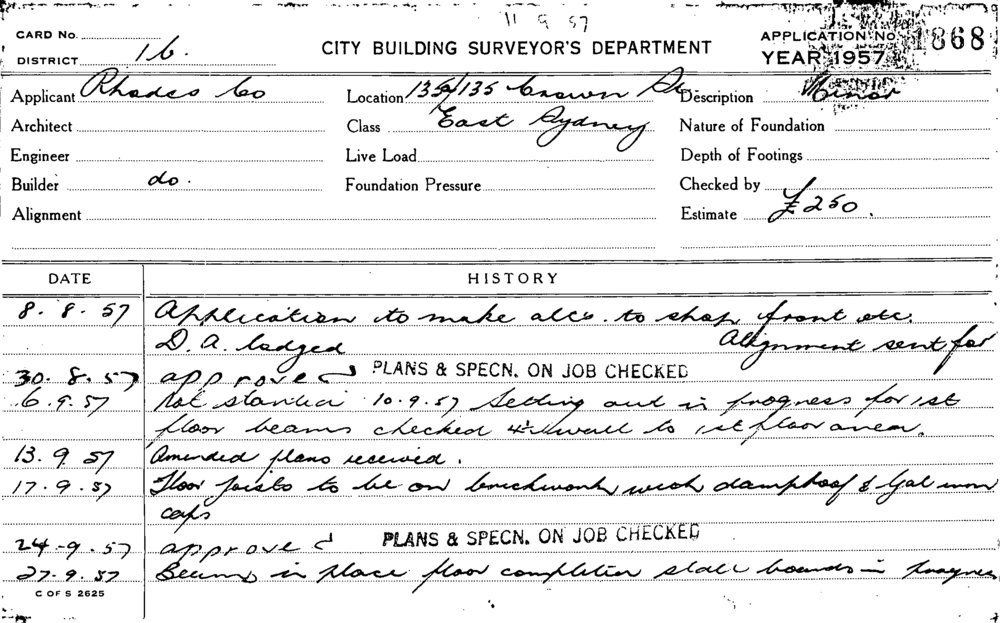 11 9 57
CARD No.
DISTRICT 16.
CITY BUILDING SURVEYOR'S DEPARTMENT
APPLICATION No 1868
YEAR 1957
Applicant Rhodes Co Location 135 Crown St Description Minor
Architect Class East Sydney Nature of Foundation
Engineer Live Load Depth of Footings
Builder do. Foundation Pressure Checked by
Alignment Estimate £250.
DATE HISTORY
8. 8. 57 Application to make altes. to shop front etc.
D. A. lodged Alignment sent for
30. 8. 57 approved PLANS & SPECN. ON JOB CHECKED
6. 9. 57 Not started 10.9.57 Setting out in progress for 1st
floor beams checked wall to 1st floor area.
13. 9. 57 Amended plans received.
17. 9. 57 Floor joists to be on brickwork with dampproof & Gal iron
caps
24. 9. 57 approved PLANS & SPECN. ON JOB CHECKED
27. 9. 57 Beams in place floor completion in progress
C OF S 2625